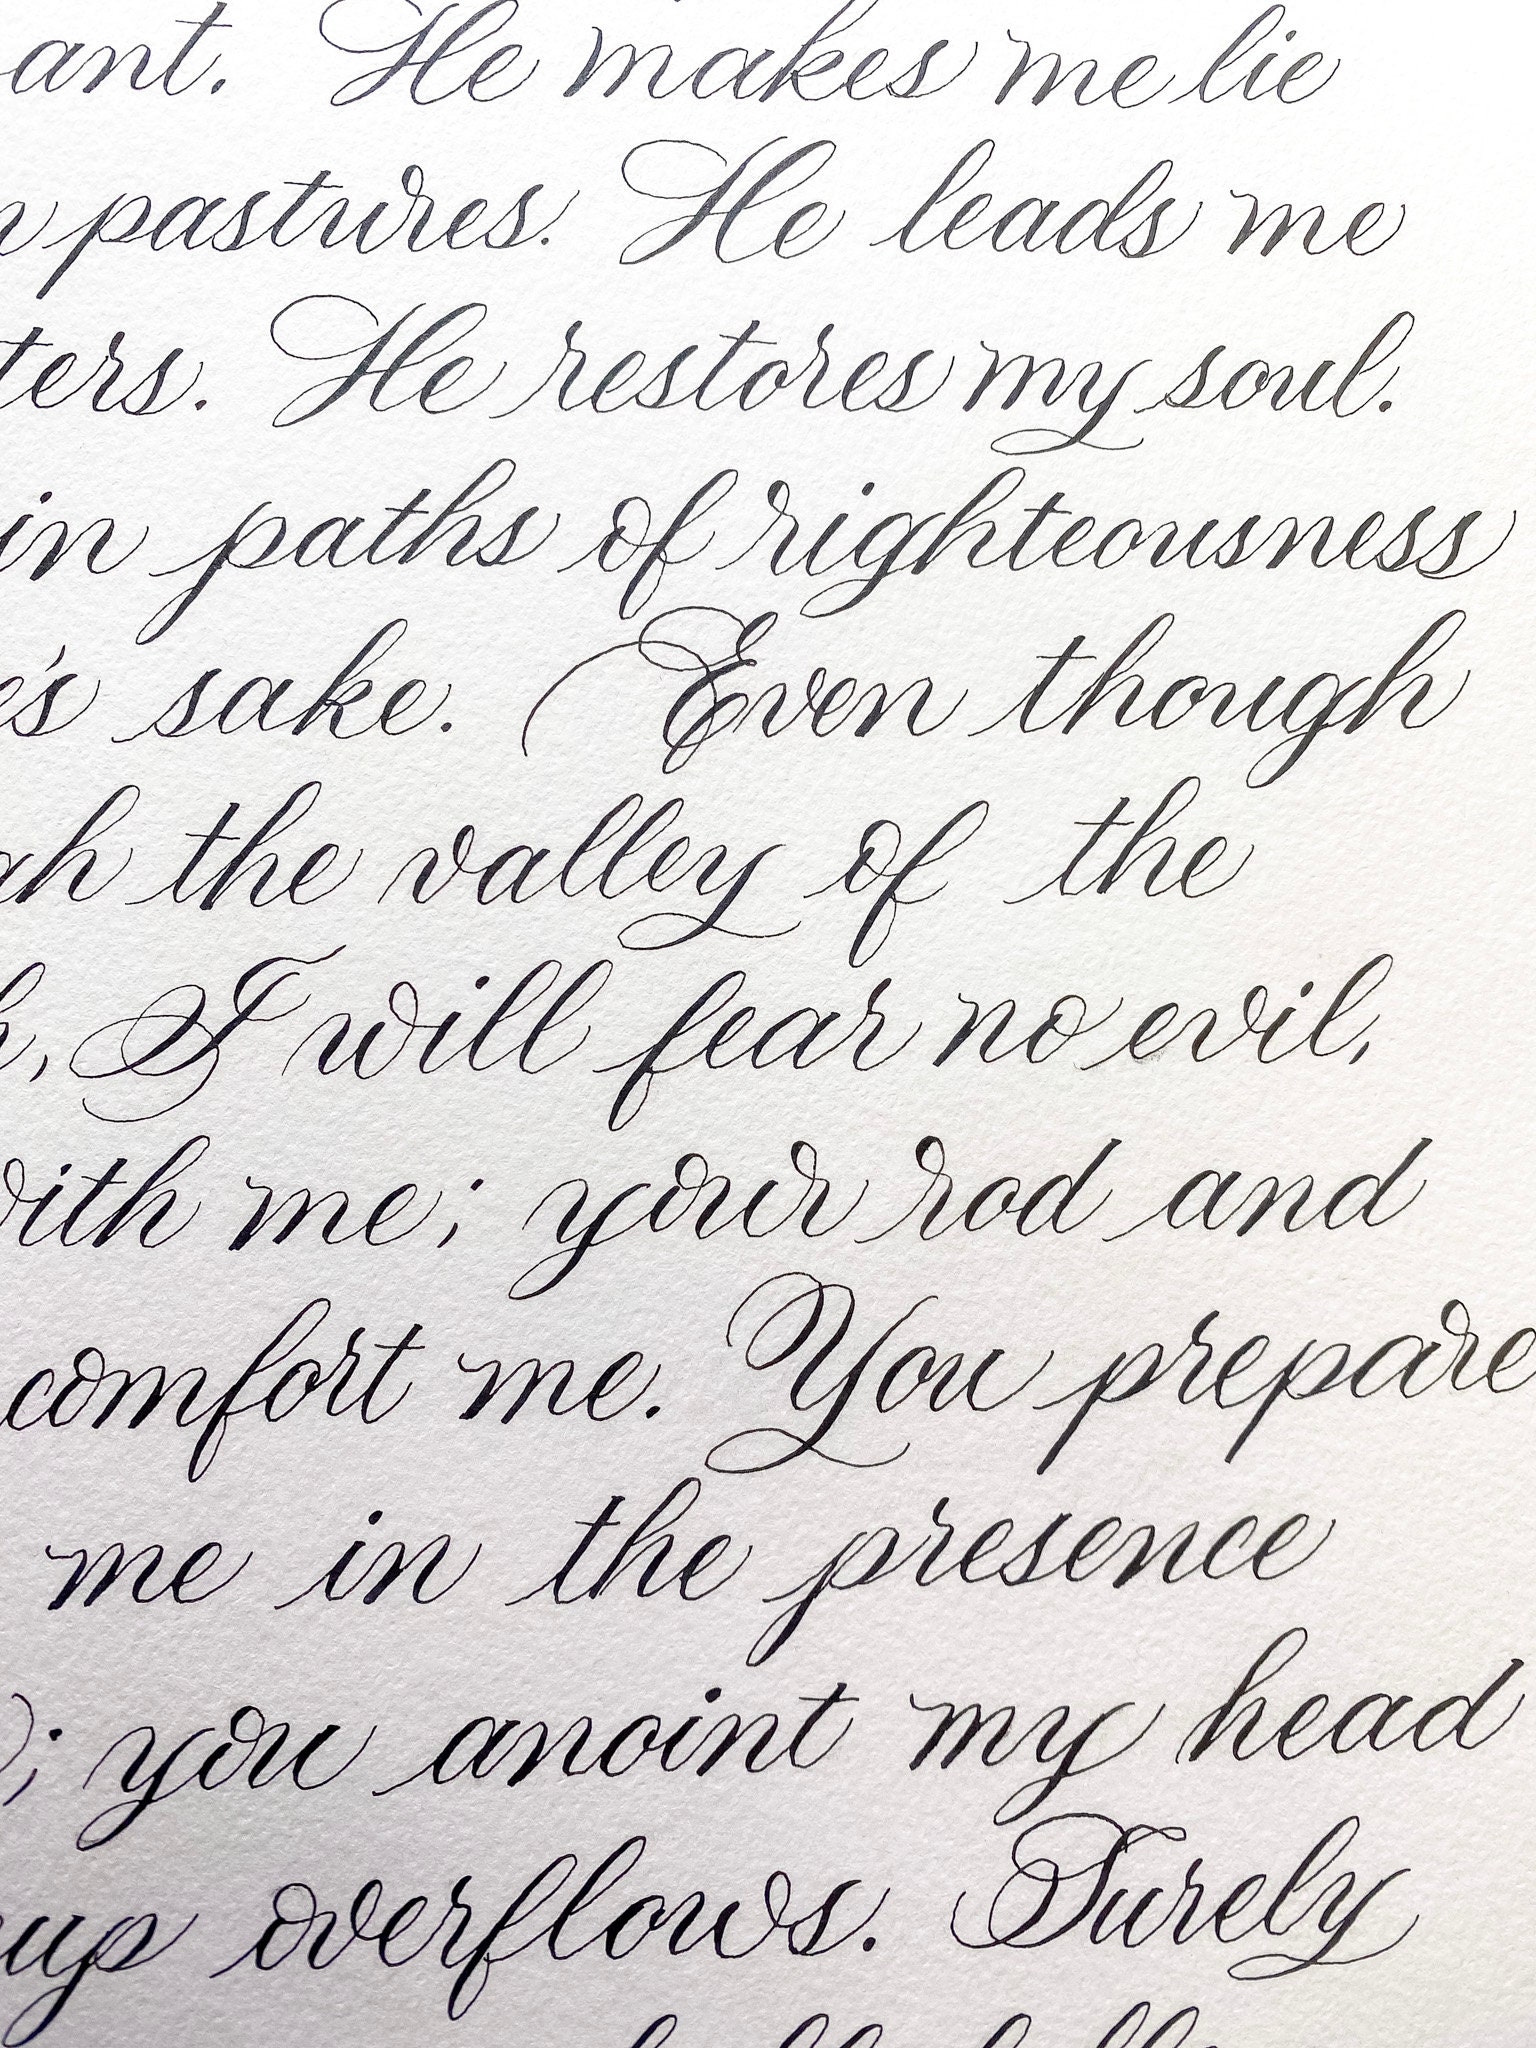 ant. He makes me lie
pastures. He leads me
ters. He restores my soul.
in paths of righteousness
e's sake. Even though
gh the valley of the
h, I will fear no evil,
with me; your rod and
comfort me. You prepare
me in the presence
; you anoint my head
cup overflows. Surely